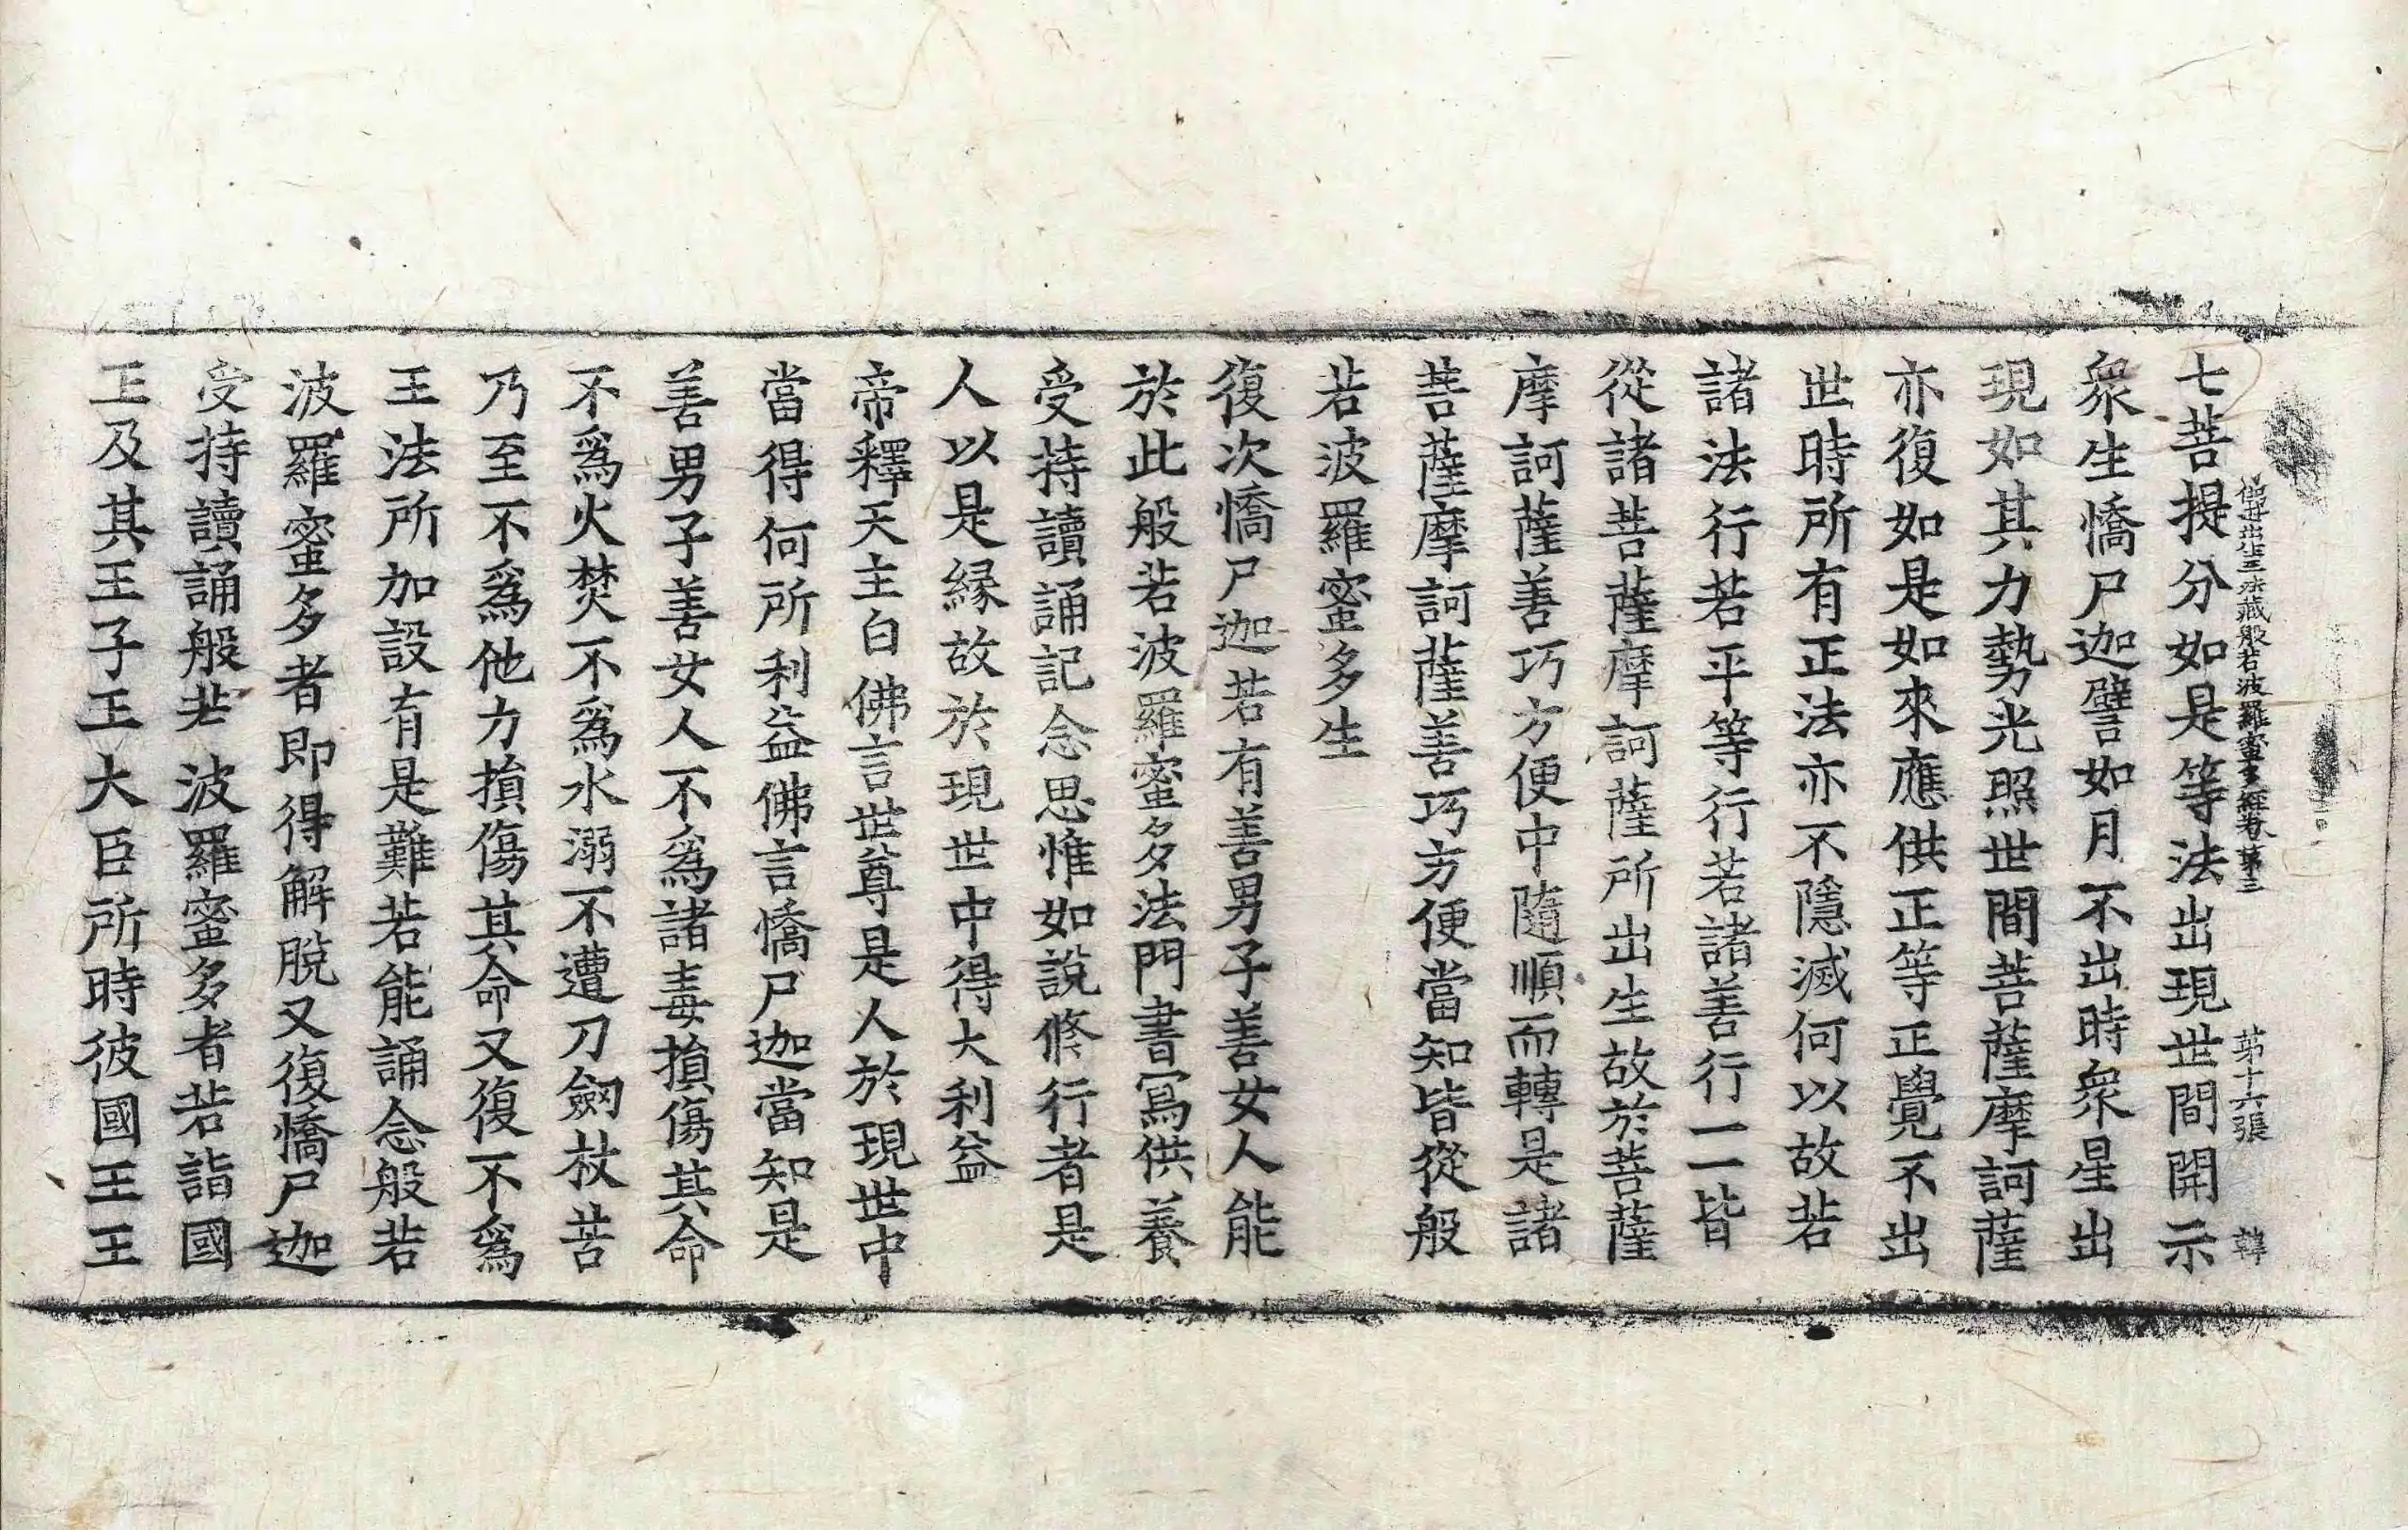 佛母出生三法藏般若波羅蜜多經卷第三 第十六張 韓
七菩提分如是等法出現世間開示
衆生憍尸迦譬如月不出時衆星出
現如其力勢光照世間菩薩摩訶薩
亦復如是如來應供正等正覺不出
世時所有正法亦不隱滅何以故若
諸法行若平等行若諸善行一一皆
從諸菩薩摩訶薩所出生故於菩薩
摩訶薩善巧方便中隨順而轉是諸
菩薩摩訶薩善巧方便當知皆從般
若波羅蜜多生
復次憍尸迦若有善男子善女人能
於此般若波羅蜜多法門書寫供養
受持讀誦記念思惟如說修行者是
人以是緣故於現世中得大利益
帝釋天主白佛言世尊是人於現世中
當得何所利益佛言憍尸迦當知是
善男子善女人不爲諸毒損傷其命
不爲火焚不爲水溺不遭刀劒杖苦
乃至不爲他力損傷其命又復不爲
王法所加設有是難若能誦念般若
波羅蜜多者即得解脫又復憍尸迦
受持讀誦般若波羅蜜多者若詣國
王及其王子王大臣所時彼國王王